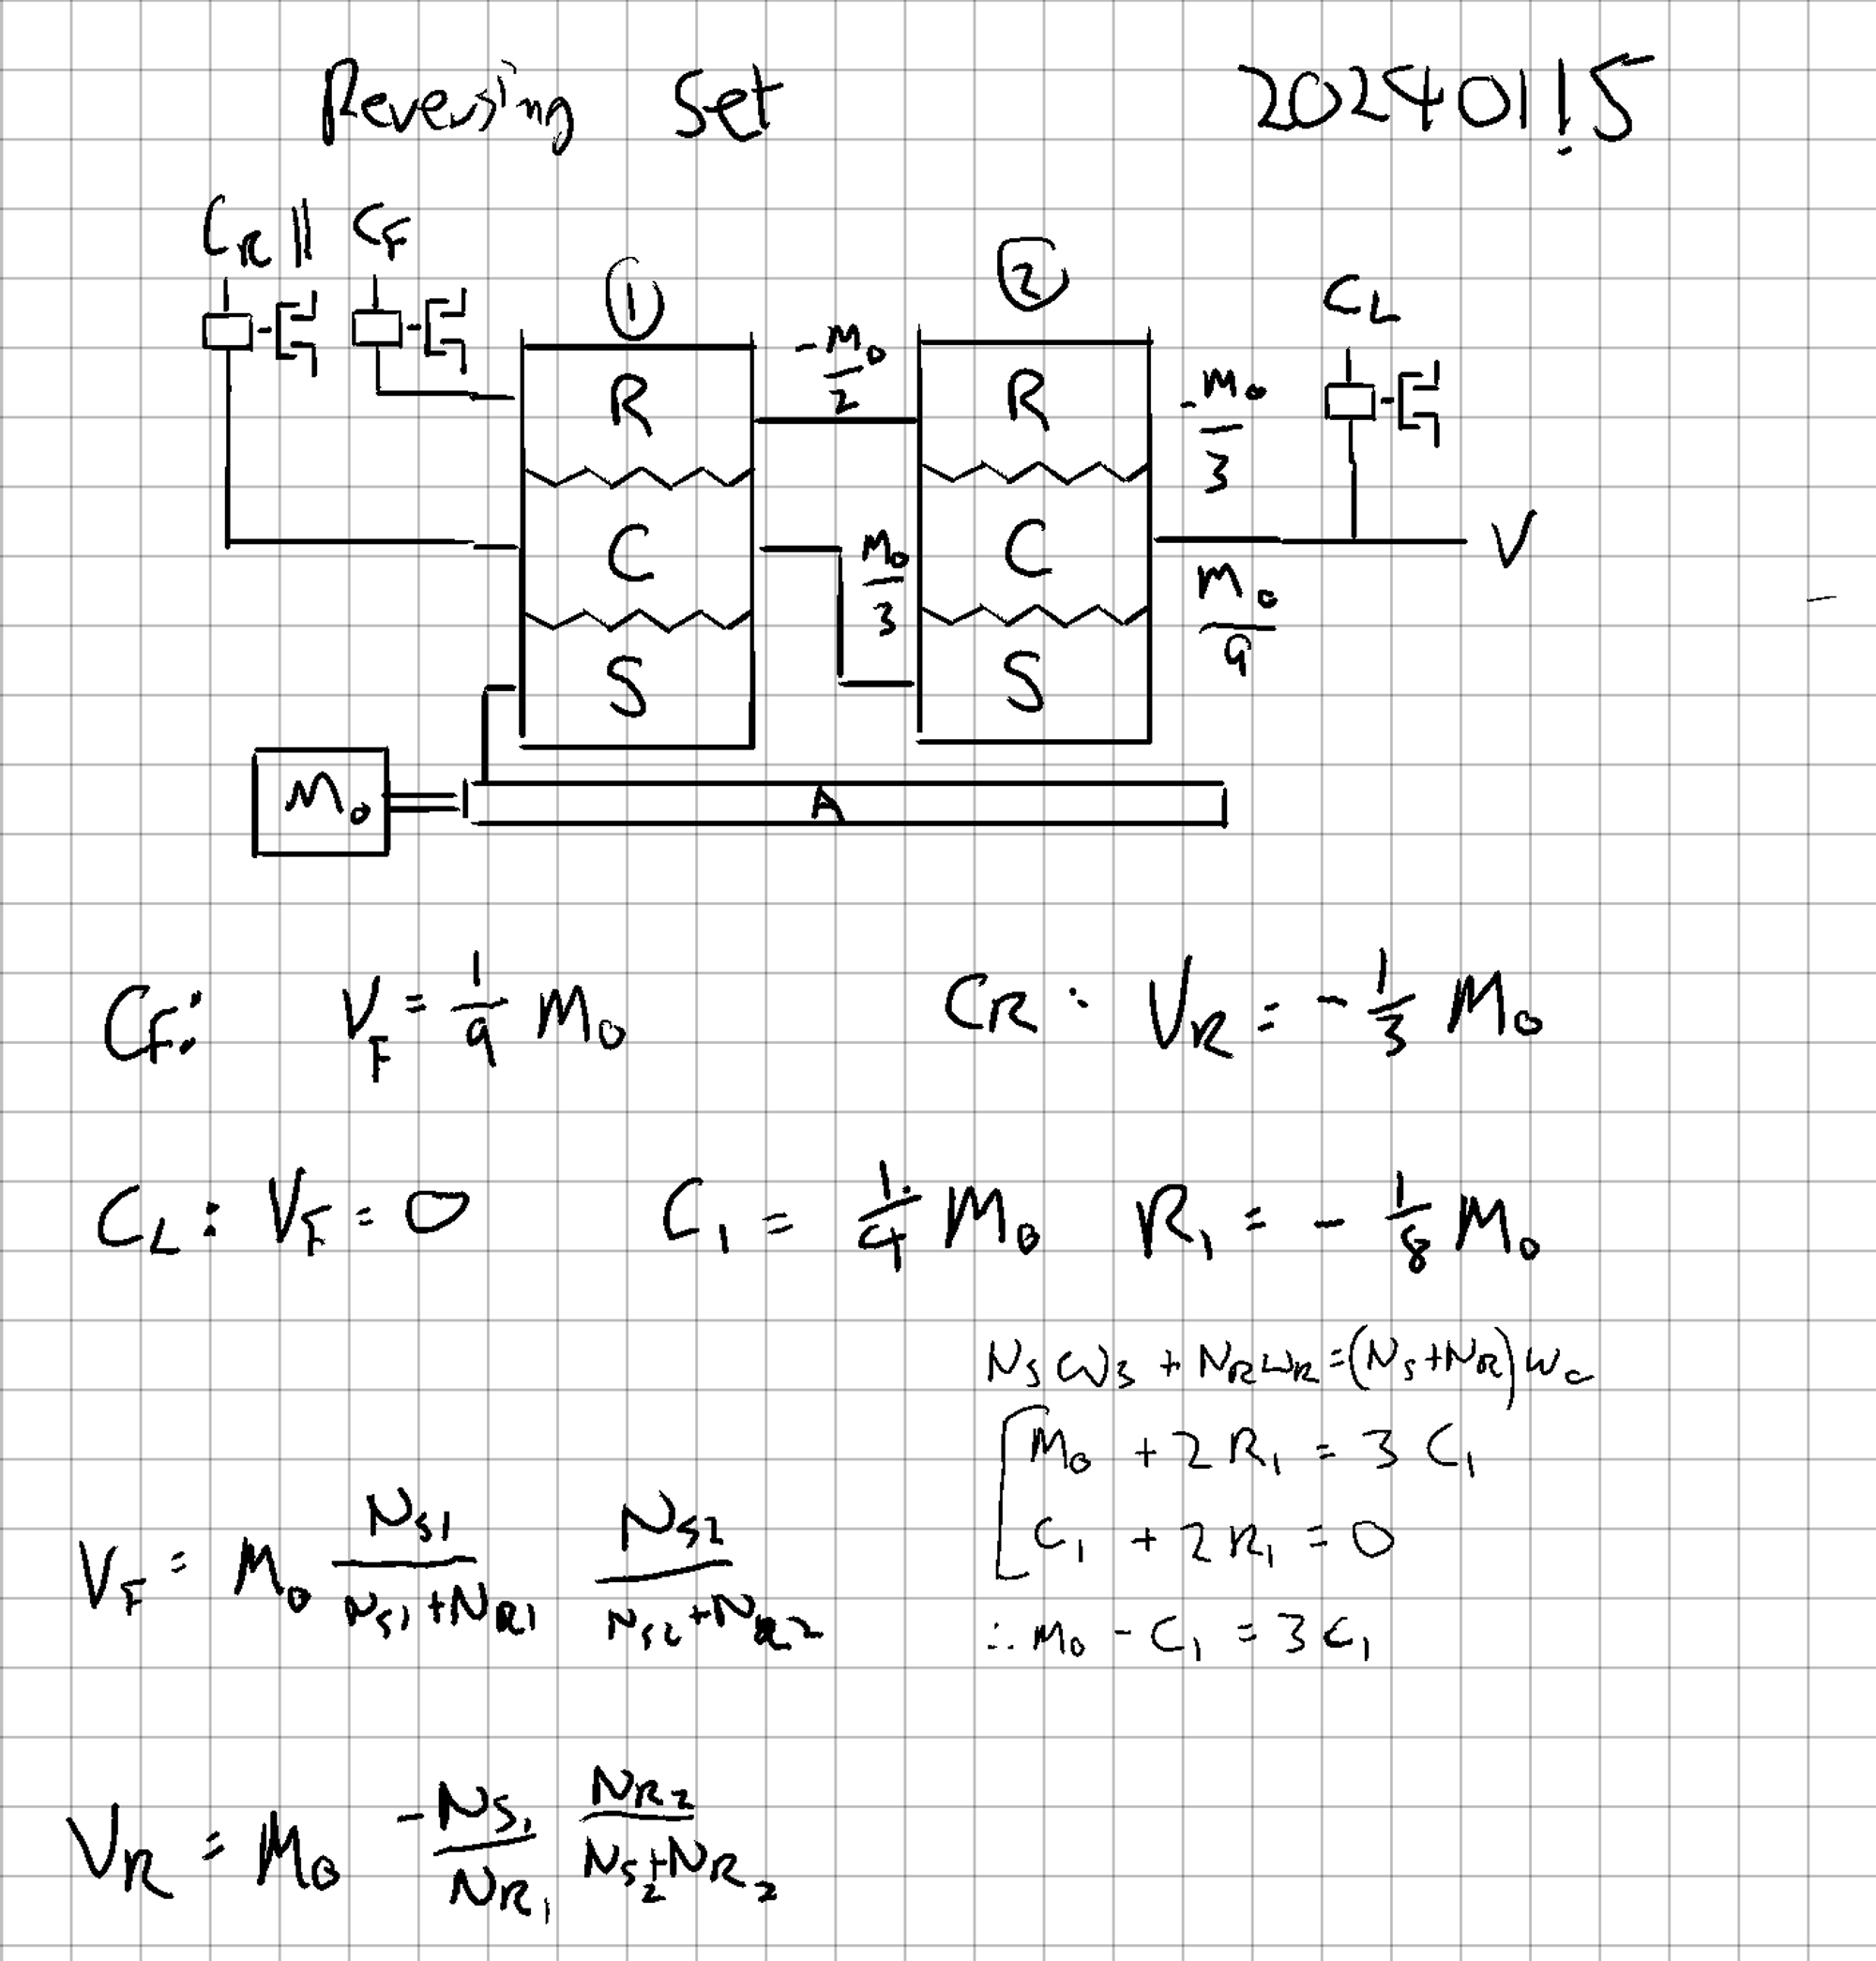 Reversing Set 20240115
CR || CF
① ② CL
R -M0/2 R -M0/3
C M0/3 C M0/9 V
S S
M0 A
CF: VF = 1/9 M0 CR: VR = -1/3 M0
CL: VF = 0 C1 = 1/4 M0 R1 = -1/8 M0
NSωS + NRωR = (NS+NR)ωC
M0 + 2R1 = 3C1
C1 + 2R1 = 0
∴ M0 - C1 = 3C1
VF = M0 NS1/(NS1+NR1) NS2/(NS2+NR2)
VR = M0 -NS1/NR1 NR2/(NS2+NR2)